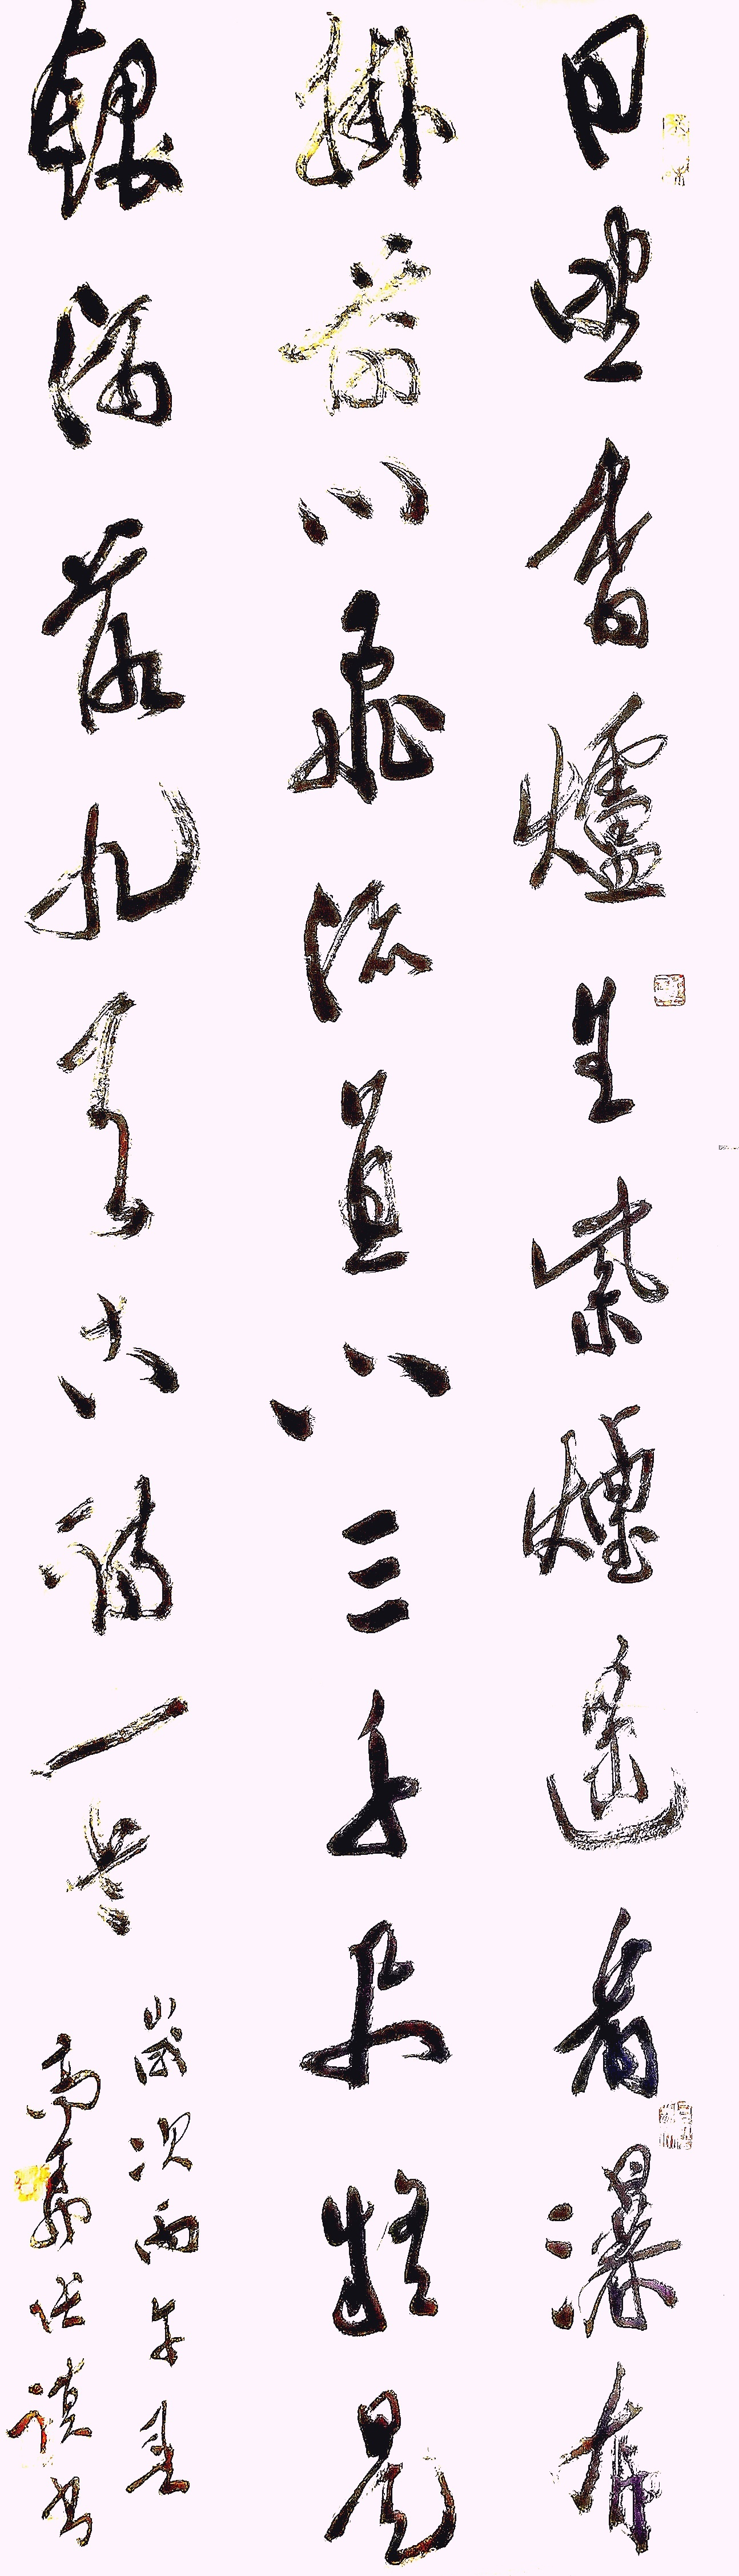 日照香爐生紫煙遙看瀑布
掛前川飛流直下三千尺疑是
銀河落九天古詩一首
歲次丙午
高 書